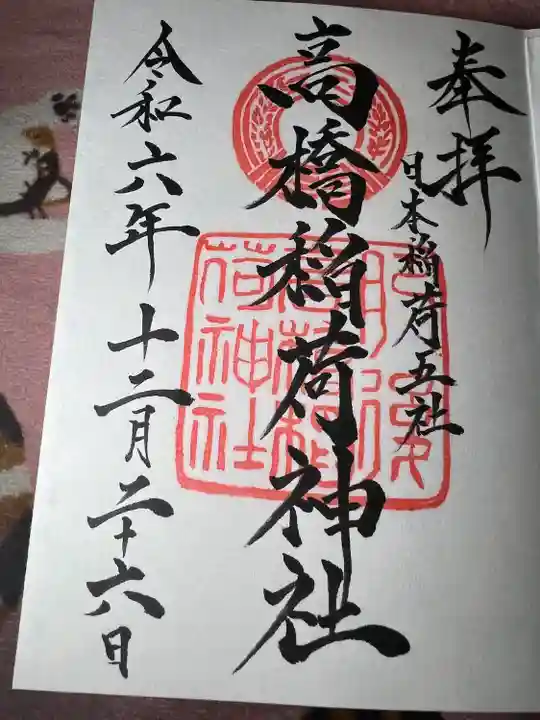 奉拝
日本稲荷五社
高橋稲荷神社
令和六年十二月二十六日